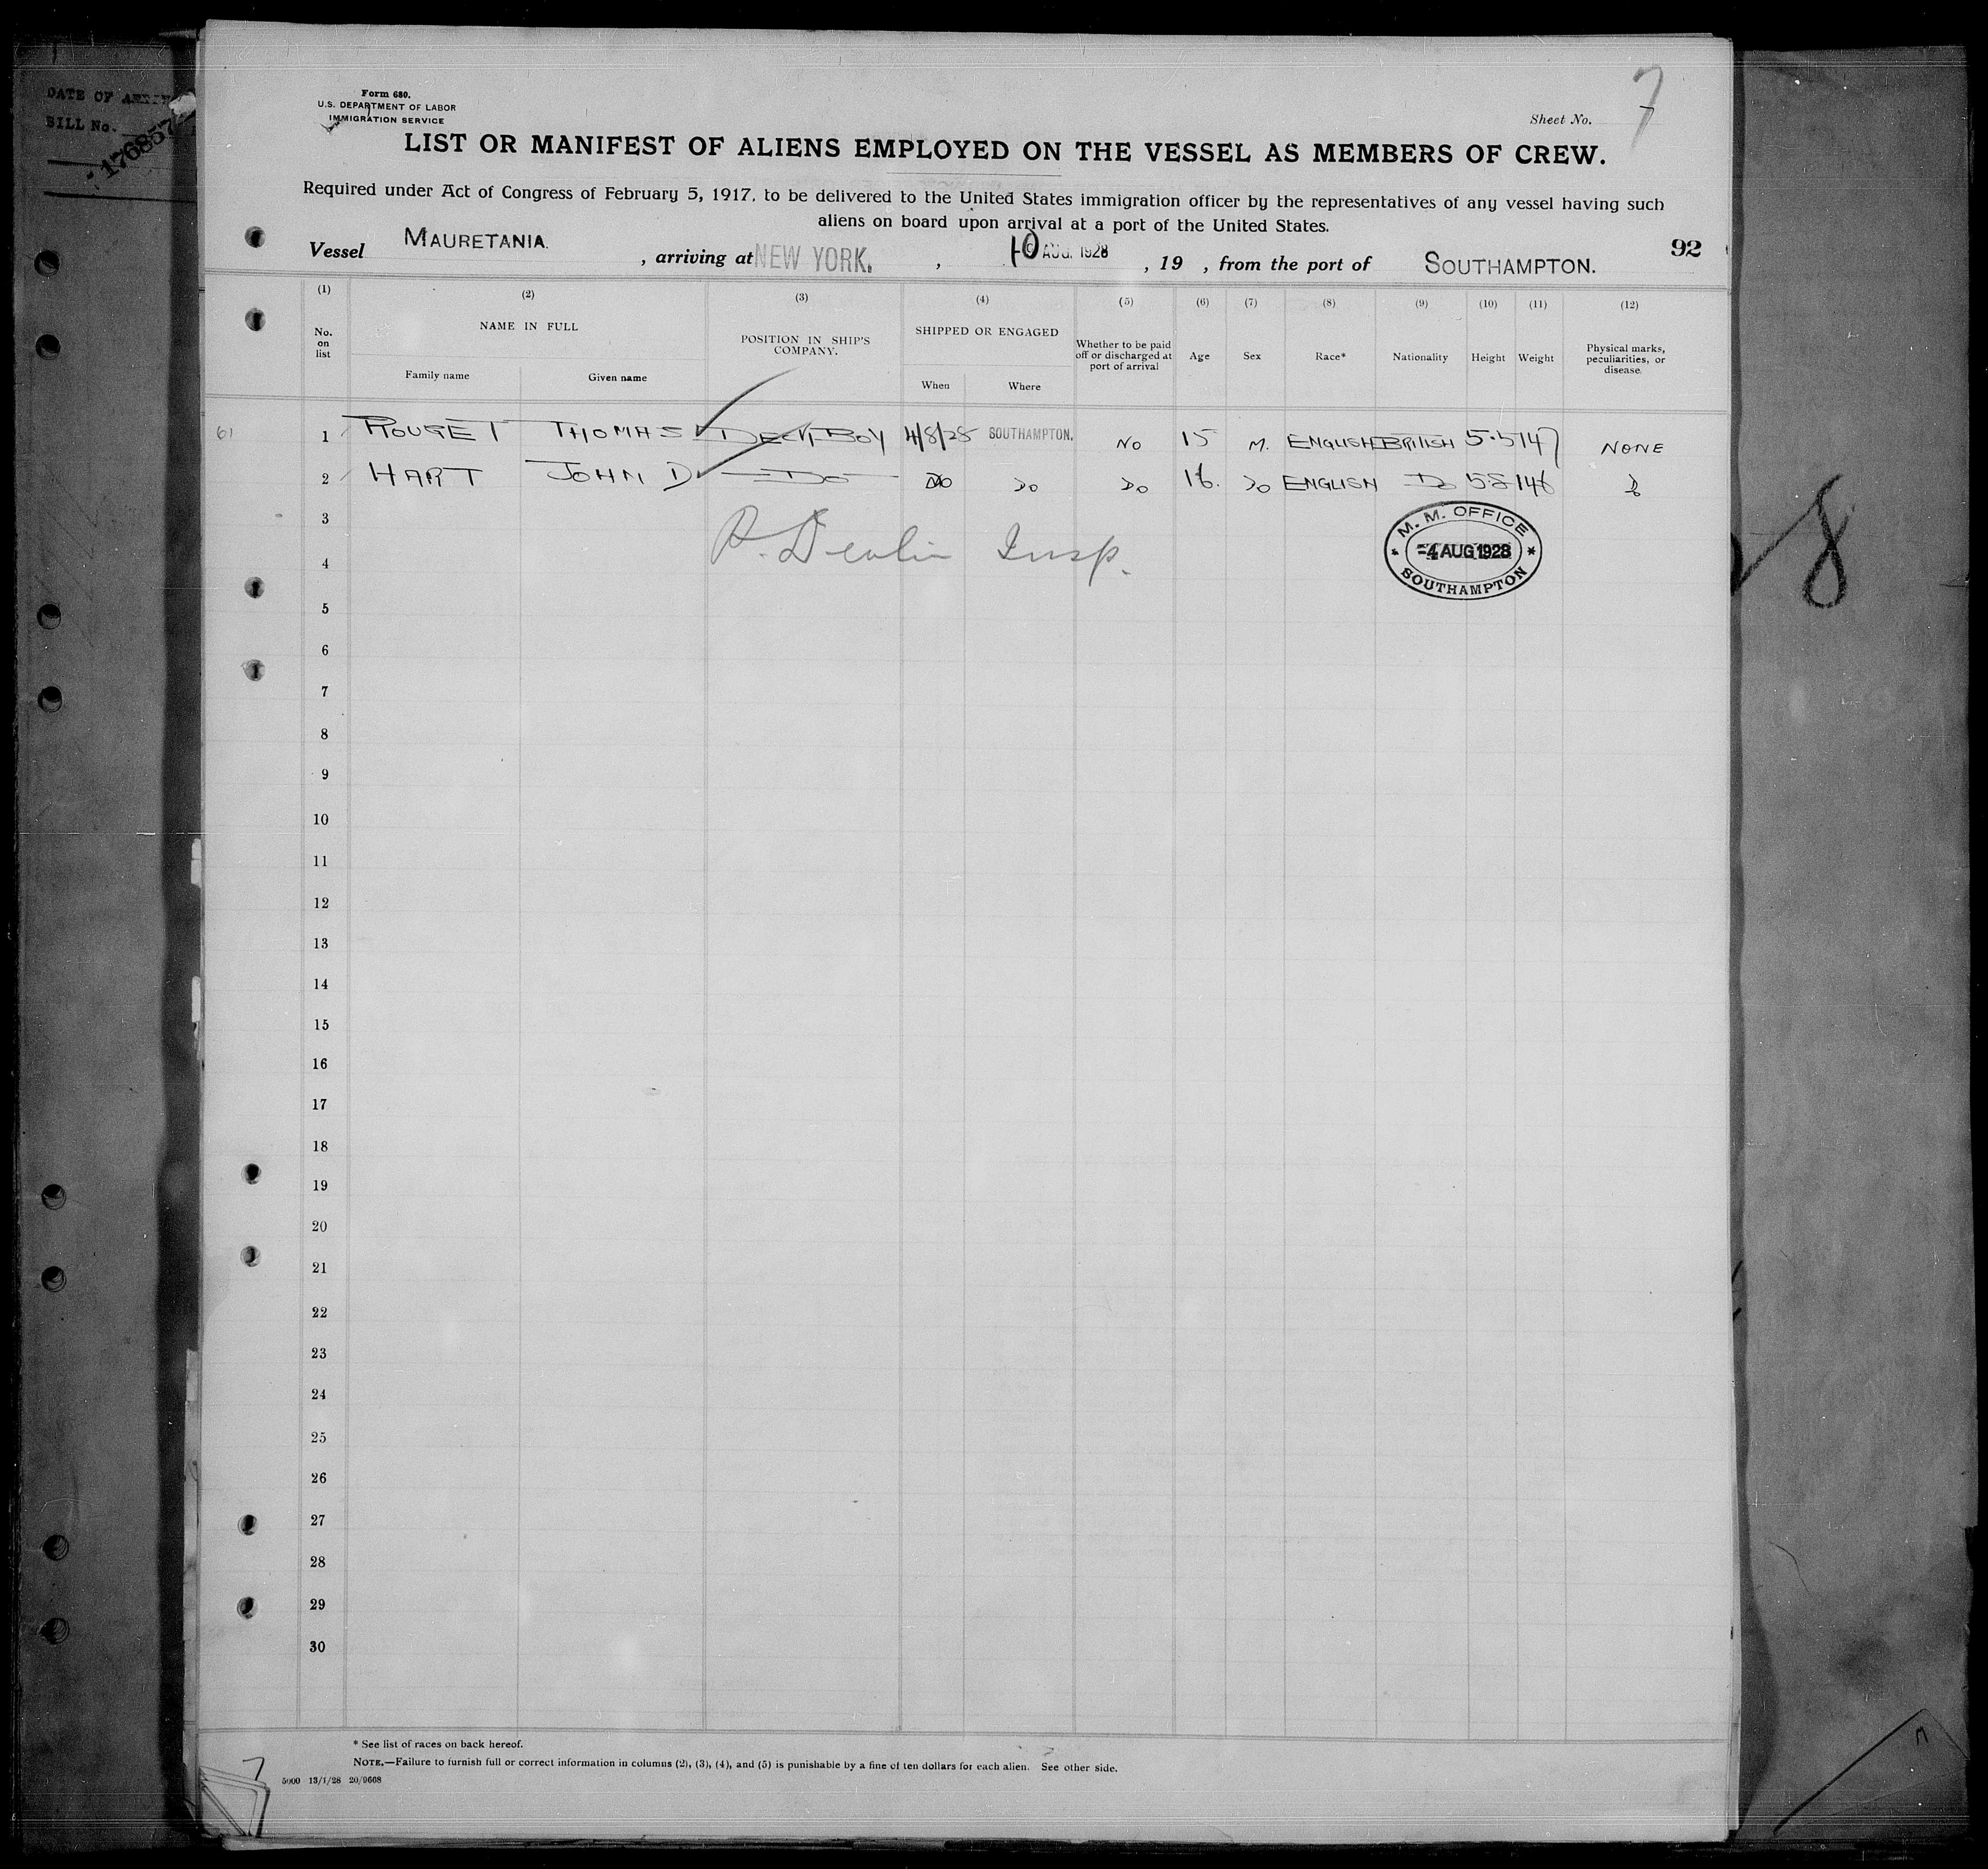 DATE OF
BILL No.
176857
Form 680.
U.S. DEPARTMENT OF LABOR
IMMIGRATION SERVICE
Sheet No. 7
LIST OR MANIFEST OF ALIENS EMPLOYED ON THE VESSEL AS MEMBERS OF CREW.
Required under Act of Congress of February 5, 1917, to be delivered to the United States immigration officer by the representatives of any vessel having such
aliens on board upon arrival at a port of the United States.
92
Vessel MAURETANIA. , arriving at NEW YORK. , 10 AUG. 1928 , 19 , from the port of SOUTHAMPTON.
(1) (2) (3) (4) (5) (6) (7) (8) (9) (10) (11) (12)
No. on list NAME IN FULL POSITION IN SHIP'S COMPANY. SHIPPED OR ENGAGED Whether to be paid off or discharged at port of arrival Age Sex Race* Nationality Height Weight Physical marks, peculiarities, or disease.
Family name Given name When Where
61 1 ROUGET THOMAS DECK BOY 4/8/28 SOUTHAMPTON. NO 15 M. ENGLISH BRITISH 5.5 147 NONE
2 HART JOHN D Do Do Do Do 16. Do ENGLISH Do 5 8 146 Do
3
4
Insp.
M. M. OFFICE
4 AUG 1928
SOUTHAMPTON
8
5
6
7
8
9
10
11
12
13
14
15
16
17
18
19
20
21
22
23
24
25
26
27
28
29
30
* See list of races on back hereof.
NOTE.—Failure to furnish full or correct information in columns (2), (3), (4), and (5) is punishable by a fine of ten dollars for each alien. See other side.
5000 13/1/28 20/9668
7